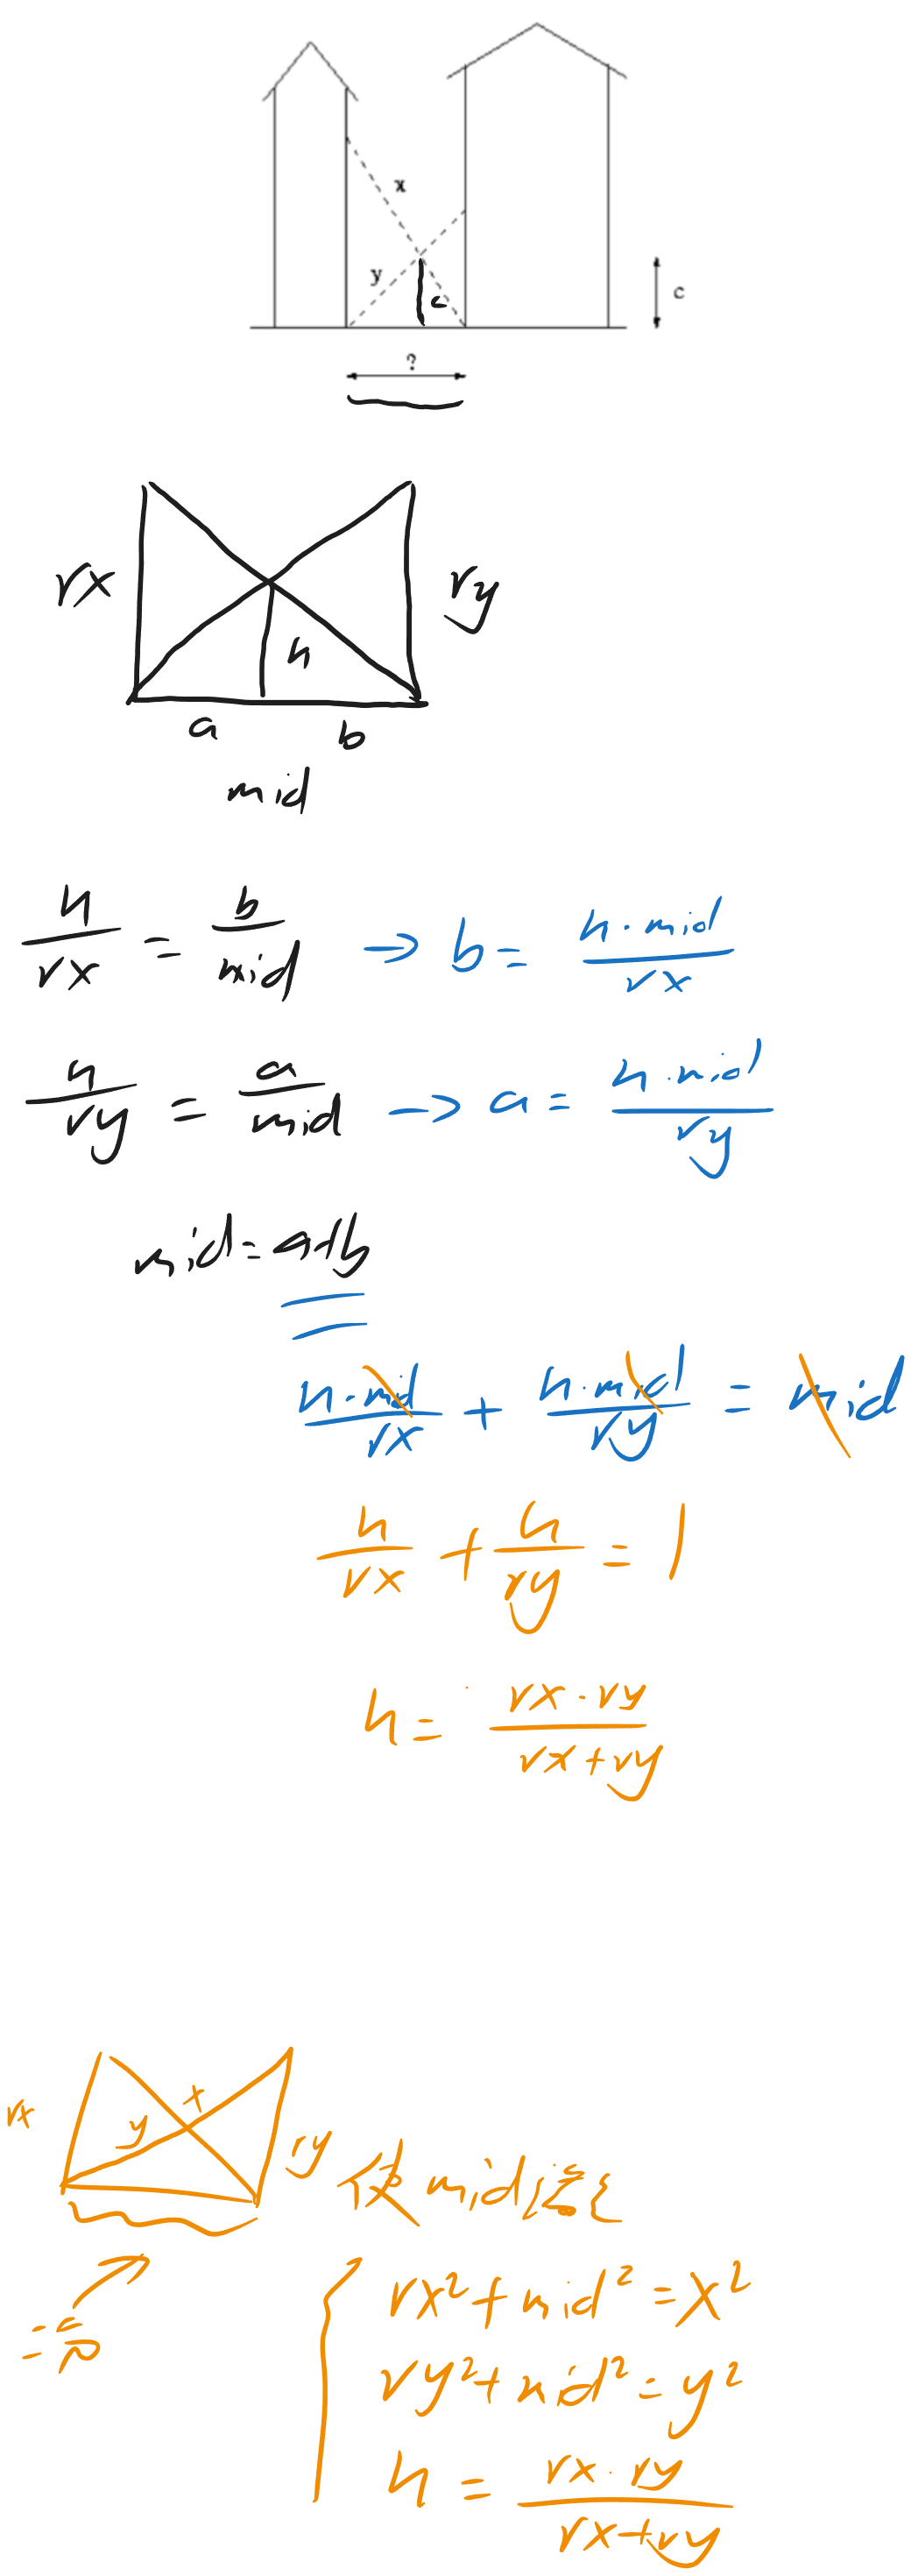 x
y
c
c
?
rx
ry
h
a
b
mid
h/rx = b/mid → b = h·mid/rx
h/ry = a/mid → a = h·mid/ry
mid=a+b
h·mid/rx + h·mid/ry = mid
h/rx + h/ry = 1
h = rx·ry/rx+ry
rx
y
x
ry
使mid
二分
rx²+mid²=x²
ry²+mid²=y²
h = rx·ry/rx+ry